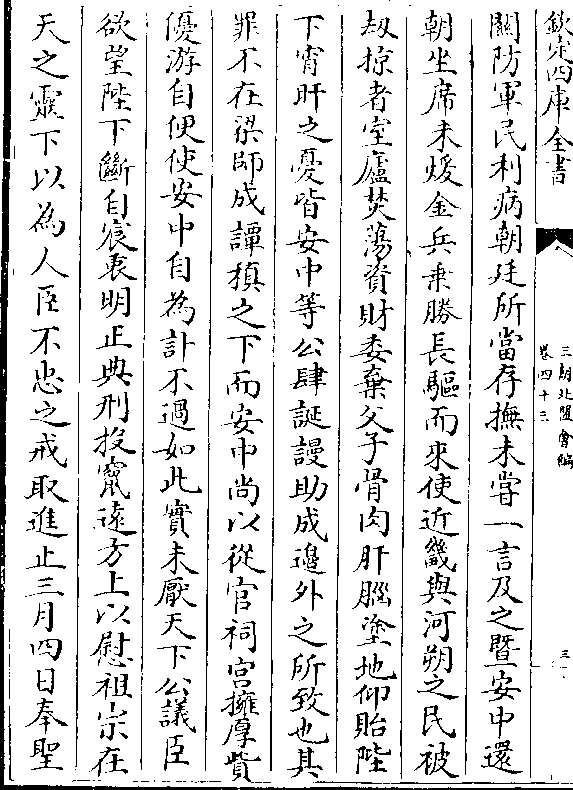 欽定四庫全書
三朝北盟會編
卷四十三
三
關防軍民利病朝廷所當存撫未嘗一言及之暨安中還
朝坐席未煖金兵乗勝長驅而來使近畿與河朔之民被
刼掠者室廬焚蕩資財委棄父子骨肉肝腦塗地仰貽陛
下宵旰之憂皆安中等公肆誕謾助成邉外之所致也其
罪不在梁師成譚稹之下而安中尚以從官祠宫擁厚貲
優游自便使安中自為計不過如此實未厭天下公議臣
欲望陛下斷自宸衷明正典刑投竄逺方上以慰祖宗在
天之靈下以為人臣不忠之戒取進止三月四日奉聖